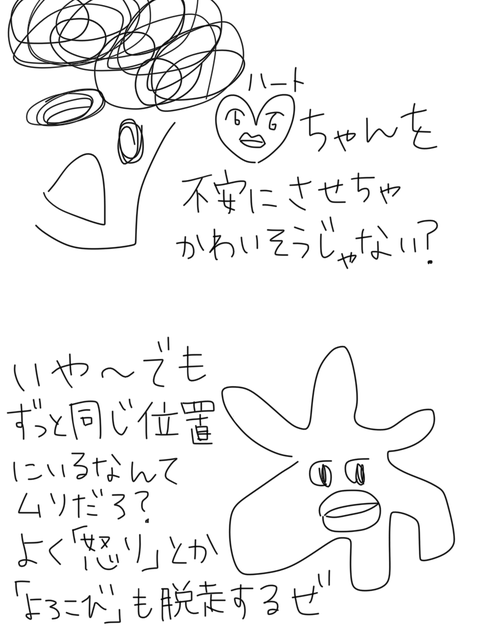 ハート
ちゃんを
不安にさせちゃ
かわいそうじゃない?
いや〜でも
ずっと同じ位置
にいるなんて
ムリだろ?
よく「怒り」とか
「よろこび」も脱走するぜ